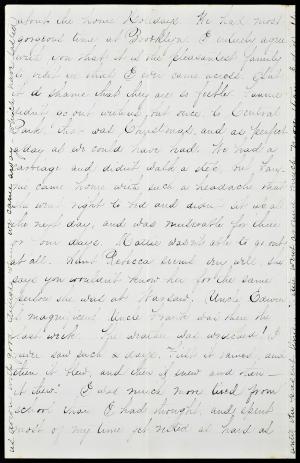 about the home Holidays. We had most
gorgeous time at Brooklyn. I entirely agree
with you that it is the pleasantest family
to visit in that I ever came across. But
it a shame that they are so feeble. Fannie
didn't go out with us but once, to Central
Park. This was Christmas, and as perfect
a day as we could have had. We had a
carriage and didn't walk a step, but Fan-
nie came home with such a headache that
she went right to bed and didn't sit up all
the next day, and was miserable for three
or four days. Hallie wasn't able to go out
at all. Aunt Rebecca seems very well, she
says you wouldn't know her for the same
before she was at Warsaw. Uncle Edward
is magnificent. Uncle Frank was there the
last week. The weather was wretched! I
never saw such days. First it rained, and
then it blew, and then it snew and then
it thew." I was much more tired from
school than I had thought, and spent
most of my time get rested as hard as